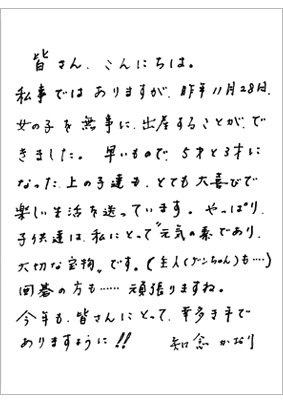 皆さん、こんにちは。
私事ではありますが、昨年11月28日、
女の子を無事に、出産することができ
きました。早いもので、5才と3才に
なった、上の子達も、とても大喜びで
楽しい生活を送っています。やっぱり、
子供達は、私にとって"元気の素であり、
大切な宝物"です。(主人(ゲンちゃん)も…)
囲碁の方も…… 頑張りますね。
今年も、皆さんにとって、幸多き年で
ありますように!! 知念かおり